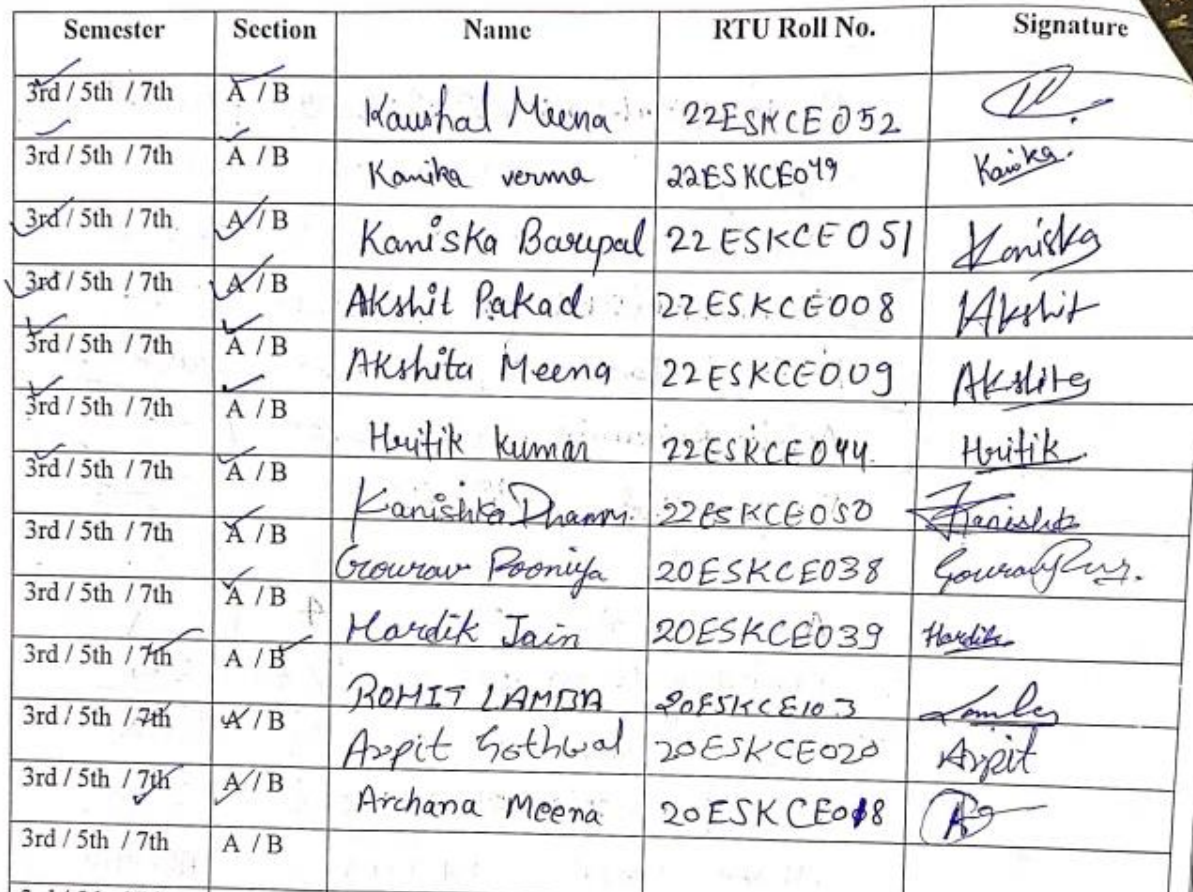 Semester Section Name RTU Roll No. Signature
3rd / 5th / 7th A / B Kaushal Meena 22ESKCE052
3rd / 5th / 7th A / B Kanika verma 22ESKCE049 Kanika.
3rd / 5th / 7th A / B Kaniska Barupal 22ESKCE051 Kaniska
3rd / 5th / 7th A / B Akshit Pakad 22ESKCE008 Akshit
3rd / 5th / 7th A / B Akshita Meena 22ESKCE009 Akshita
3rd / 5th / 7th A / B Hritik kumar 22ESKCE044 Hritik
3rd / 5th / 7th A / B Kanishka 22ESKCE050 Kanishk
3rd / 5th / 7th A / B Gourav Pooniya 20ESKCE038 Gourav
3rd / 5th / 7th A / B Hardik Jain 20ESKCE039 Hardik
3rd / 5th / 7th A / B ROHIT LAMBA 20ESKCE103 Lamba
3rd / 5th / 7th A / B Arpit Gothwal 20ESKCE020 Arpit
3rd / 5th / 7th A / B Archana Meena 20ESKCE018
3rd / 5th / 7th A / B